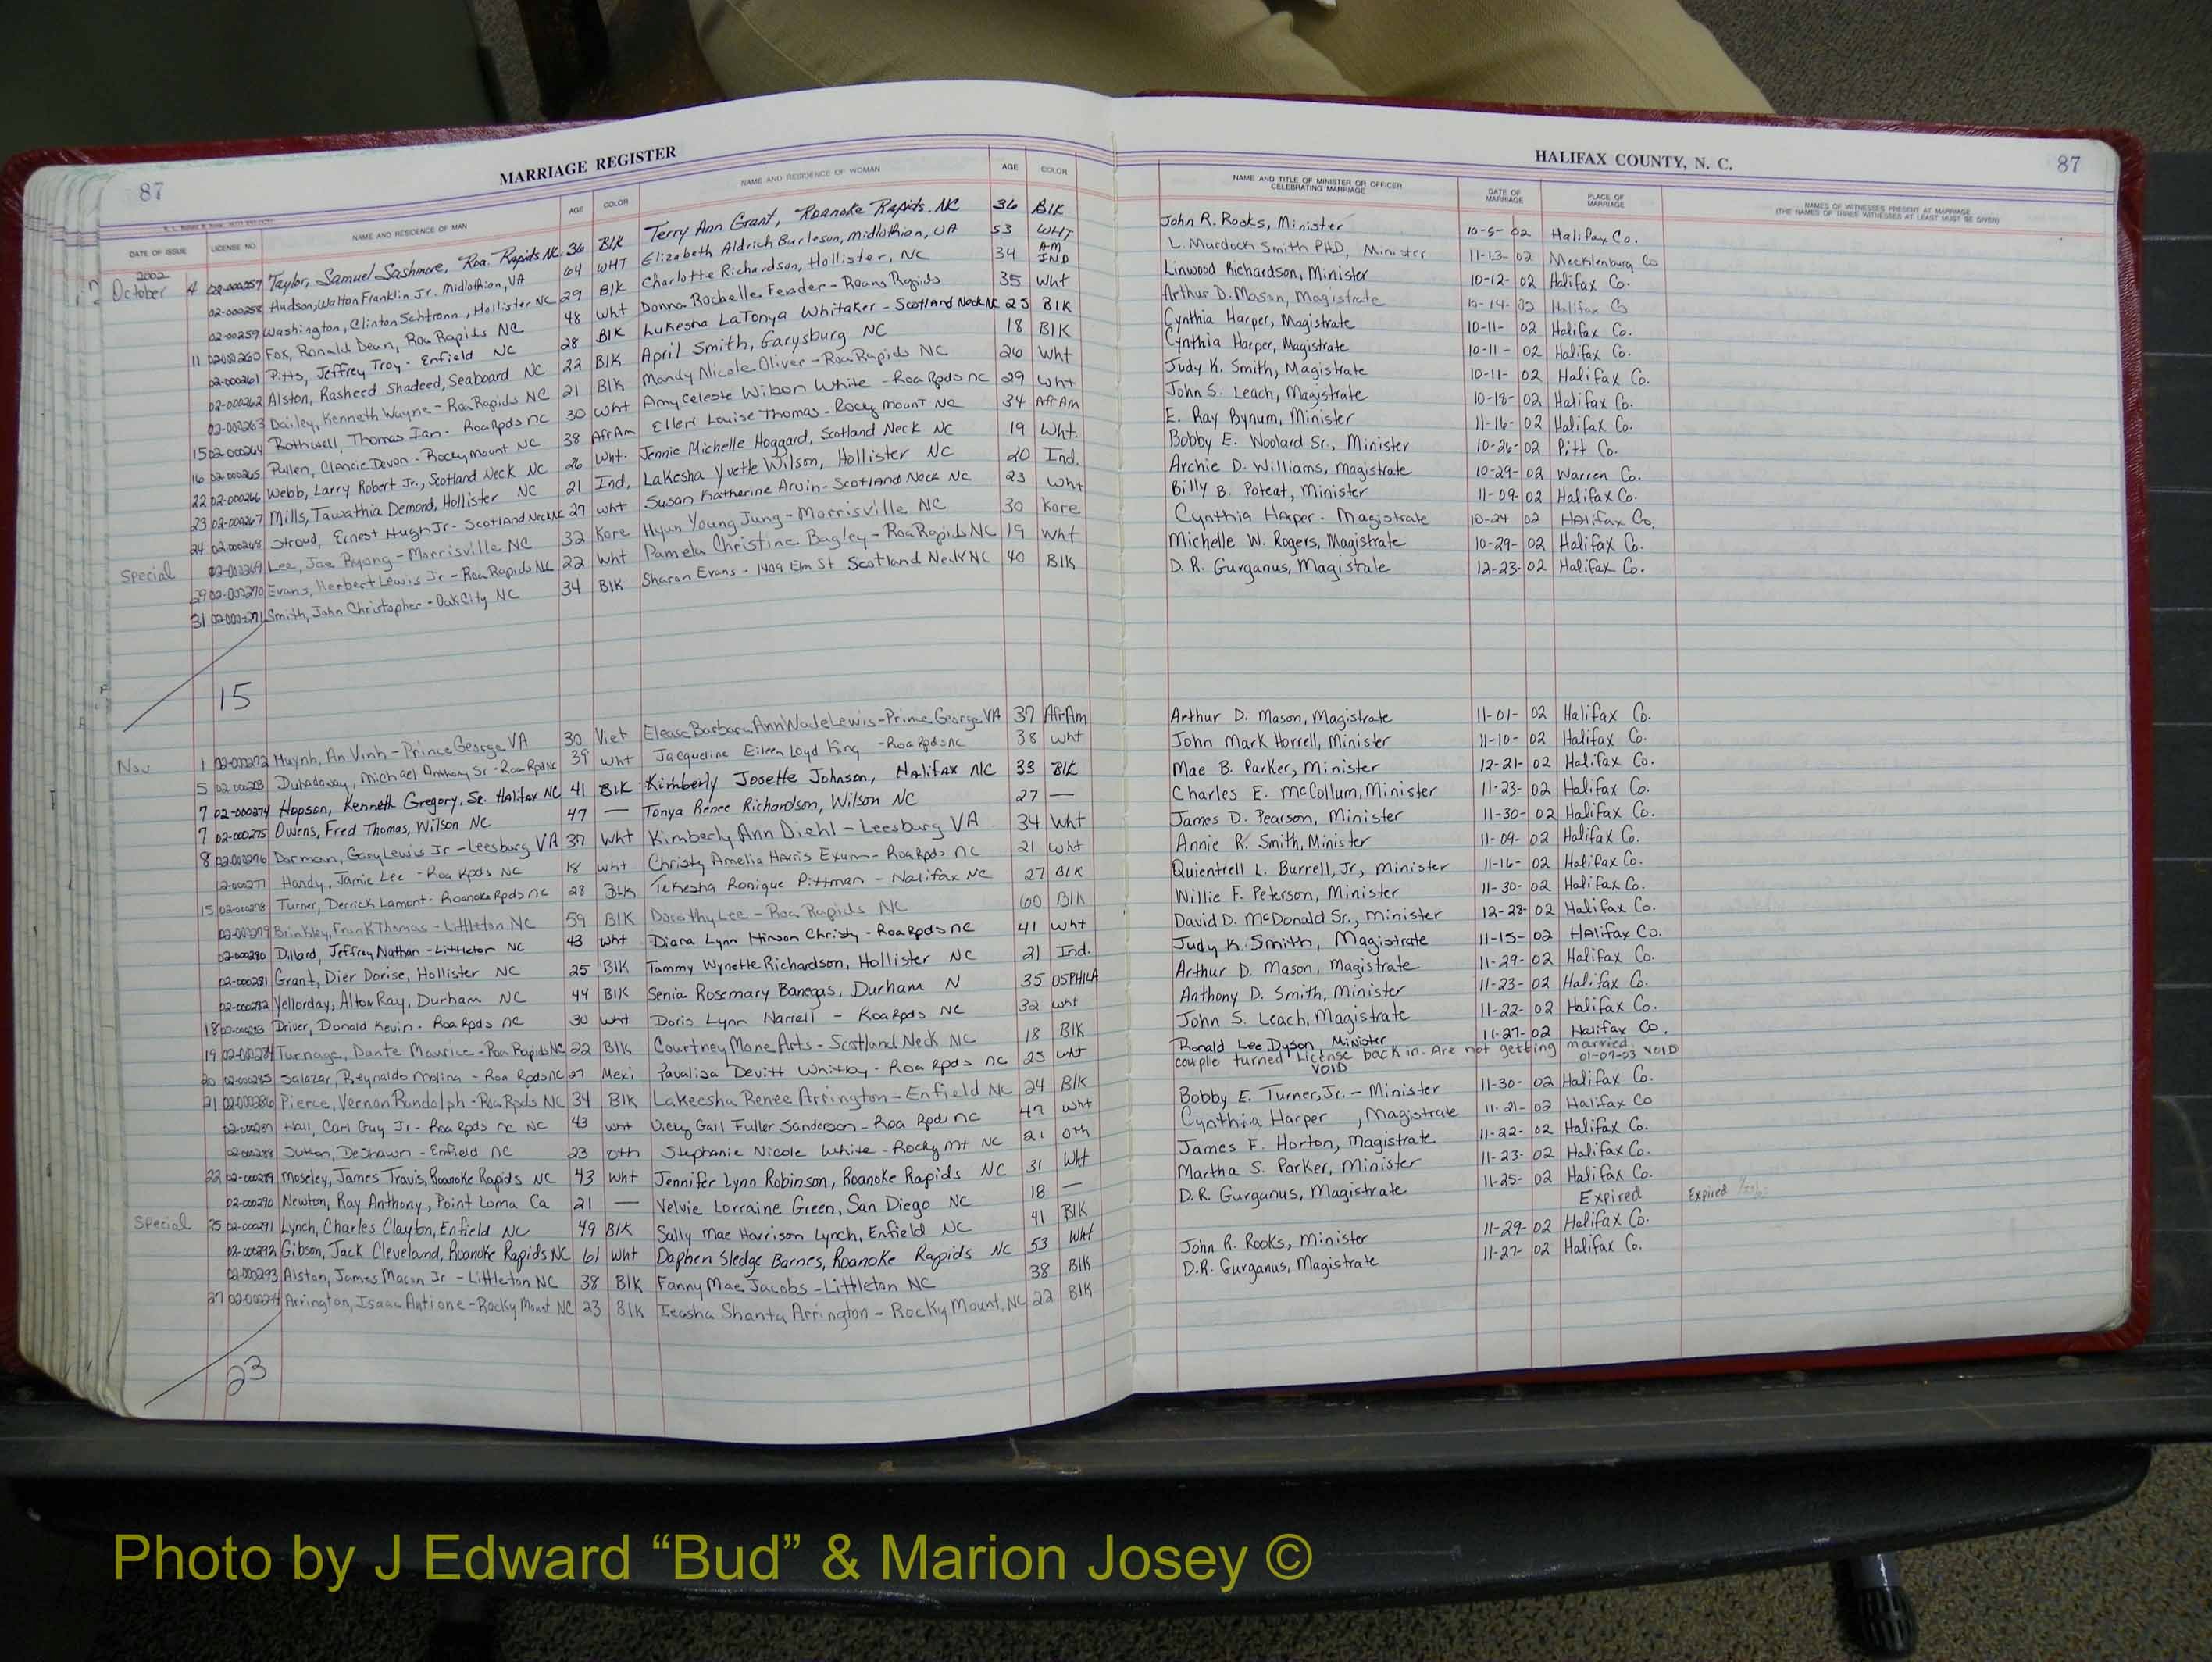 87 MARRIAGE REGISTER HALIFAX COUNTY, N. C. 87
DATE OF ISSUE LICENSE NO. NAME AND RESIDENCE OF MAN AGE COLOR NAME AND RESIDENCE OF WOMAN AGE COLOR NAME AND TITLE OF MINISTER OR OFFICER CELEBRATING MARRIAGE DATE OF MARRIAGE PLACE OF MARRIAGE NAMES OF WITNESSES PRESENT AT MARRIAGE (THE NAMES OF THREE WITNESSES AT LEAST MUST BE GIVEN)
2002
October 4 02-000257 Taylor, Samuel Sashmore, Roa. Rapids NC 36 Blk Terry Ann Grant, Roanoke Rapids. NC 36 Blk John R. Rooks, Minister 10-5-02 Halifax Co.
02-000258 Hudson, Walton Franklin Jr. Midlothian, VA 64 WHT Elizabeth Aldrich Burleson, Midlothian, VA 53 WHT L. Murdock Smith PHD, Minister 11-13-02 Mecklenburg Co
02-000259 Washington, Clinton Schtronn, Hollister NC 29 Blk Charlotte Richardson, Hollister, NC 34 AM IND Linwood Richardson, Minister 10-12-02 Halifax Co.
11 02-000260 Fox, Ronald Dean, Roa Rapids NC 48 Wht Donna Rochelle Feader - Roans Rapids 35 Wht Arthur D. Mason, Magistrate 10-14-02 Halifax Co
02-000261 Pitts, Jeffrey Troy - Enfield NC 28 Blk Lukesha LaTonya Whitaker - Scotland Neck NC 25 Blk Cynthia Harper, Magistrate 10-11-02 Halifax Co.
02-000262 Alston, Rasheed Shadeed, Seaboard NC 22 Blk April Smith, Garysburg NC 18 Blk Cynthia Harper, Magistrate 10-11-02 Halifax Co.
02-000263 Dailey, Kenneth Wayne - Roa Rapids NC 21 Blk Mandy Nicole Oliver - Roa Rapids NC 26 Wht Judy K. Smith, Magistrate 10-11-02 Halifax Co.
15 02-000264 Rothwell, Thomas Ian - Roa Rpds NC 30 Wht Amy Celeste Wilson White - Roa Rpds NC 29 Wht John S. Leach, Magistrate 10-18-02 Halifax Co.
16 02-000265 Pullen, Clancie Devon - Rocky Mount NC 38 AfrAm Ellen Louise Thomas - Rocky Mount NC 34 AfrAm E. Ray Bynum, Minister 11-16-02 Halifax Co.
22 02-000266 Webb, Larry Robert Jr., Scotland Neck NC 26 Wht. Jennie Michelle Hoggard, Scotland Neck NC 19 Wht. Bobby E. Woolard Sr., Minister 10-26-02 Pitt Co.
23 02-000267 Mills, Tawathia Demond, Hollister NC 21 Ind. Lakesha Yvette Wilson, Hollister NC 20 Ind. Archie D. Williams, Magistrate 10-29-02 Warren Co.
24 02-000268 Stroud, Ernest Hugh Jr - Scotland Neck NC 27 Wht Susan Katherine Arvin - Scotland Neck NC 23 Wht Billy B. Poteat, Minister 11-09-02 Halifax Co.
Special 02-000269 Lee, Jae Pyong - Morrisville NC 32 Kore Hyun Young Jung - Morrisville NC 30 Kore Cynthia Harper - Magistrate 10-24 02 Halifax Co.
29 02-000270 Evans, Herbert Lewis Jr - Roa Rapids NC 22 Wht Pamela Christine Bagley - Roa Rapids NC 19 Wht Michelle W. Rogers, Magistrate 10-29-02 Halifax Co.
31 02-000271 Smith, John Christopher - Oak City NC 34 Blk Sharon Evans - 1409 Elm St Scotland Neck NC 40 Blk D. R. Gurganus, Magistrate 12-23-02 Halifax Co.
15
Nov 1 02-000272 Huynh, An Vinh - Prince George VA 30 Viet Elease Barbara Ann Wade Lewis - Prince George VA 37 AfrAm Arthur D. Mason, Magistrate 11-01-02 Halifax Co.
5 02-000273 Duhadaway, Michael Anthony Sr - Roa Rpds NC 39 Wht Jacqueline Eileen Loyd King - Roa Rpds NC 38 Wht John Mark Horrell, Minister 11-10-02 Halifax Co.
7 02-000274 Hopson, Kenneth Gregory, Sr. Halifax NC 41 Blk Kimberly Josette Johnson, Halifax NC 33 Blk Mae B. Parker, Minister 12-21-02 Halifax Co.
7 02-000275 Owens, Fred Thomas, Wilson NC 47 — Tonya Renee Richardson, Wilson NC 27 — Charles E. McCollum, Minister 11-23-02 Halifax Co.
8 02-000276 Dorman, Gary Lewis Jr - Leesburg VA 37 Wht Kimberly Ann Diehl - Leesburg VA 34 Wht James D. Pearson, Minister 11-30-02 Halifax Co.
02-000277 Handy, Jamie Lee - Roa Rpds NC 18 Wht Christy Amelia Harris Exum - Roa Rpds NC 21 Wht Annie R. Smith, Minister 11-09-02 Halifax Co.
15 02-000278 Turner, Derrick Lamont - Roanoke Rpds NC 28 Blk Tekesha Ronique Pittman - Halifax NC 27 Blk Quientrell L. Burrell, Jr, Minister 11-16-02 Halifax Co.
02-000279 Brinkley, Frank Thomas - Littleton NC 59 Blk Dorothy Lee - Roa Rapids NC 60 Blk Willie F. Peterson, Minister 11-30-02 Halifax Co.
02-000280 Dillard, Jeffrey Nathan - Littleton NC 43 Wht Diana Lynn Hinson Christy - Roa Rpds NC 41 Wht David D. McDonald Sr., Minister 12-28-02 Halifax Co.
02-000281 Grant, Dier Dorise, Hollister NC 25 Blk Tammy Wynette Richardson, Hollister NC 21 Ind. Judy K. Smith, Magistrate 11-15-02 Halifax Co.
02-000282 Yellorday, Alton Ray, Durham NC 44 Blk Senia Rosemary Banegas, Durham N 35 OSPHILA Arthur D. Mason, Magistrate 11-29-02 Halifax Co.
18 02-000283 Driver, Donald Kevin - Roa Rpds NC 30 Wht Doris Lynn Harrell - Roa Rpds NC 32 Wht Anthony D. Smith, Minister 11-23-02 Halifax Co.
19 02-000284 Turnage, Dante Maurice - Roa Rapids NC 22 Blk Courtney Mone Arts - Scotland Neck NC 18 Blk John S. Leach, Magistrate 11-22-02 Halifax Co.
20 02-000285 Salazar, Reynaldo Molina - Roa Rpds NC 27 Mexi Pavalisa Devitt Whitby - Roa Rpds NC 25 Wht Ronald Lee Dyson, Minister 11-27-02 Halifax Co.
21 02-000286 Pierce, Vernon Rundolph - Roa Rpds NC 34 Blk Lakeesha Renee Arrington - Enfield NC 24 Blk couple turned License back in. Are not getting married VOID 01-07-03 VOID
02-000287 Hall, Carl Guy Jr - Roa Rpds NC NC 43 Wht Vicky Gail Fuller Sanderson - Roa Rpds NC 47 Wht Bobby E. Turner, Jr. - Minister 11-30-02 Halifax Co.
02-000288 Sutton, DeShawn - Enfield NC 23 Oth Stephanie Nicole White - Rocky Mt NC 21 Oth Cynthia Harper, Magistrate 11-21-02 Halifax Co
22 02-000289 Moseley, James Travis, Roanoke Rapids NC 43 Wht Jennifer Lynn Robinson, Roanoke Rapids NC 31 Wht James F. Horton, Magistrate 11-22-02 Halifax Co.
02-000290 Newton, Ray Anthony, Point Loma Ca 21 — Velvie Lorraine Green, San Diego NC 18 — Martha S. Parker, Minister 11-23-02 Halifax Co.
Special 25 02-000291 Lynch, Charles Clayton, Enfield NC 49 Blk Sally Mae Harrison Lynch, Enfield NC 41 Blk D. R. Gurganus, Magistrate 11-25-02 Halifax Co.
02-000292 Gibson, Jack Cleveland, Roanoke Rapids NC 61 Wht Daphen Sledge Barnes, Roanoke Rapids NC 53 Wht Expired Expired
02-000293 Alston, James Macon Jr - Littleton NC 38 Blk Fanny Mae Jacobs - Littleton NC 38 Blk John R. Rooks, Minister 11-29-02 Halifax Co.
27 02-000294 Arrington, Isaac Antione - Rocky Mount NC 23 Blk Ieasha Shanta Arrington - Rocky Mount, NC 22 Blk D.R. Gurganus, Magistrate 11-27-02 Halifax Co.
23
Photo by J Edward “Bud” & Marion Josey ©